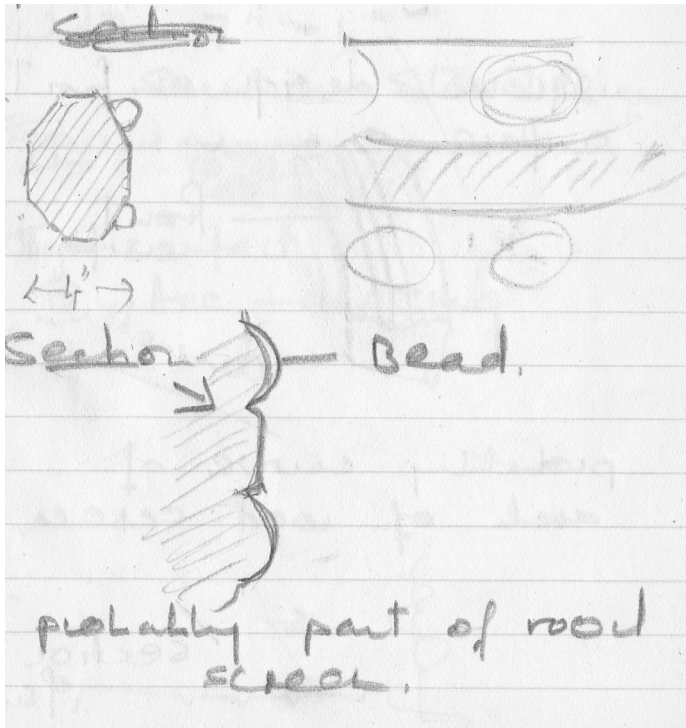 Section
4"
Section Bead.
probably part of rood
screen.